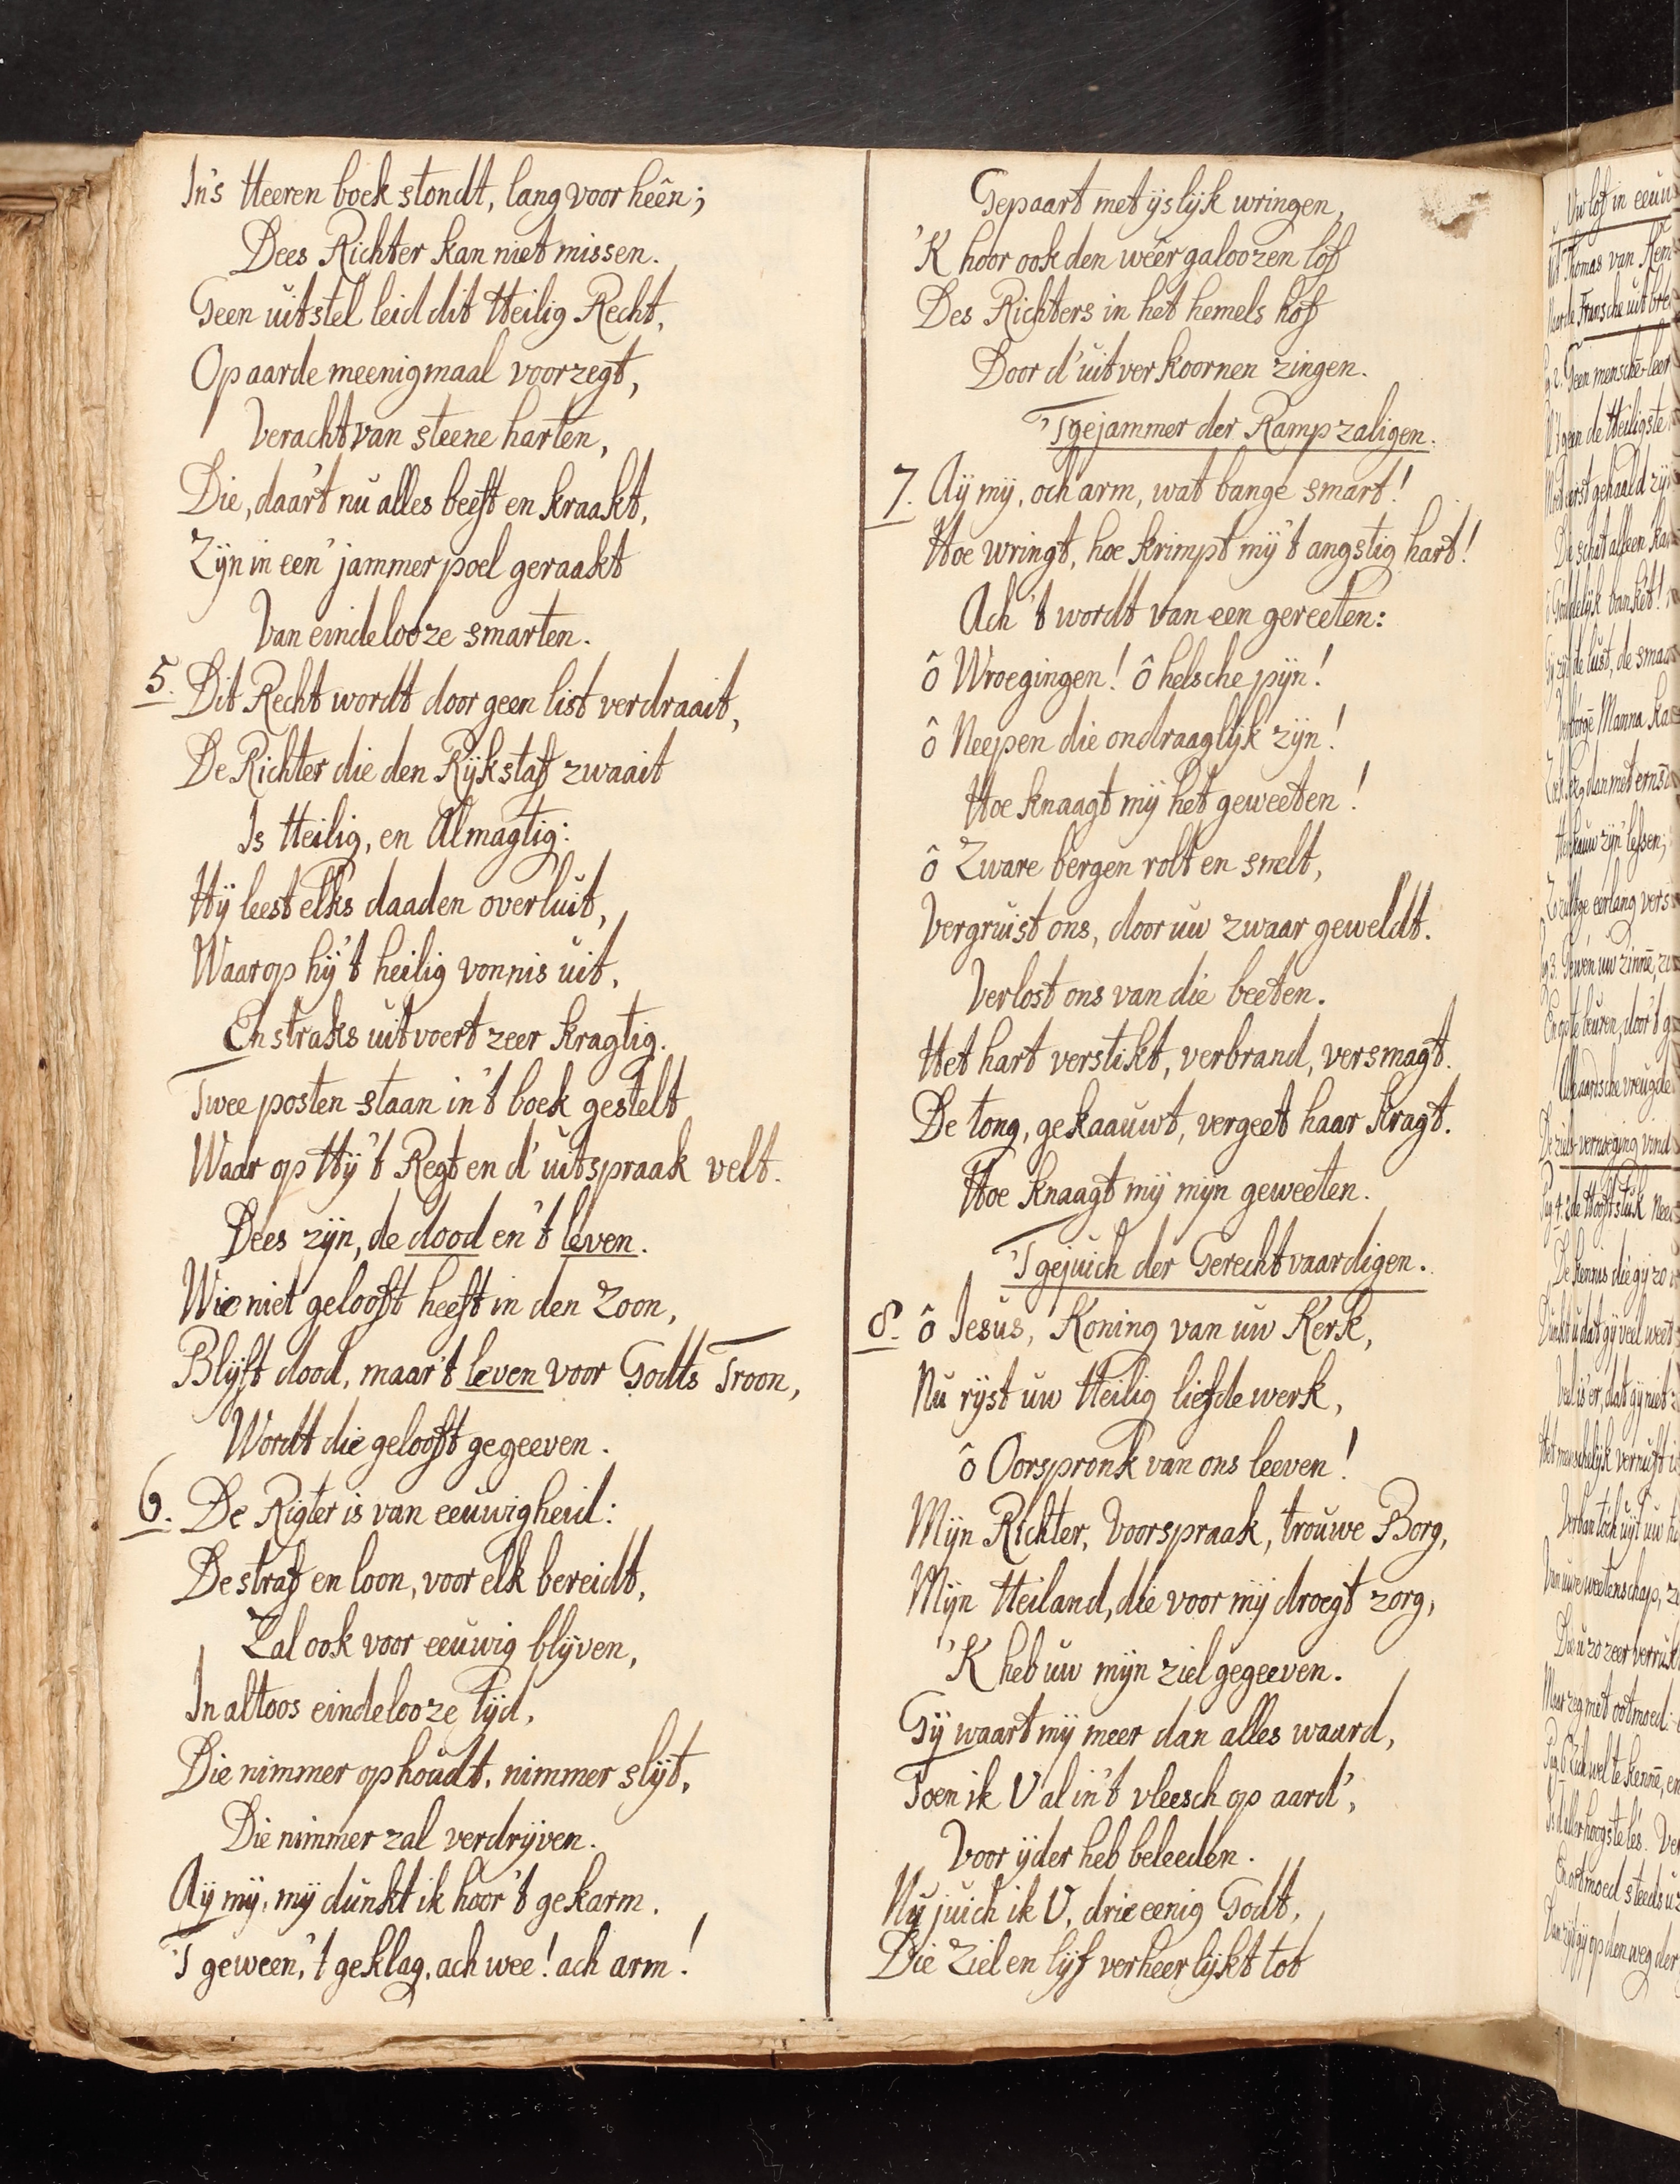 In's Heeren boek stondt, lang voor heên;
Dees Richter kan niet missen.
Geen uitstel leid dit Heilig Recht,
Op aarde meenigmaal voorzegt,
Veracht van steene harten,
Die, daar't nu alles beeft en kraakt,
Zÿn in een' jammer poel geraakt
Van eindelooze smarten.
5. Dit Recht wordt door geen list verdraait,
De Richter die den Rÿkstaf zwaait
Is Heilig, en Almagtig:
Hÿ leest elks daaden overluit,
Waar op hÿ't heilig vonnis uit,
En straks uitvoert zeer kragtig.
Twee posten staan in't boek gestelt
Waar op Hÿ't Regt en d'uitspraak velt.
Dees zÿn, de dood en't leven.
Wie niet gelooft heeft in den Zoon,
Blÿft dood, maar't leven voor Godts Troon,
Wordt die gelooft gegeeven.
6. De Rigter is van eeuwigheid:
De straf en loon, voor elk bereidt,
Zal ook voor eeuwig blÿven,
In altoos eindelooze tÿd,
Die nimmer ophoudt, nimmer slÿt,
Die nimmer zal verdrÿven.
Aÿ mÿ, mÿ dunkt ik hoor't gekarm.
'T geween, 't geklag, ach wee! ach arm!
Gepaart met ÿslÿk wringen,
'K hoor ook den weêrgaloozen lof
Des Richters in het hemels hof
Door d'uitverkoornen zingen.
'T gejammer der Rampzaligen.
7. Aÿ mÿ, och arm, wat bange smart!
Hoe wringt, hoe krimpt mÿ't angstig hart!
Ach 't wordt van een gereeten:
ô Wroegingen! ô helsche pÿn!
ô Neepen die ondraaglÿk zÿn!
Hoe knaagt mÿ het geweeten!
ô Zware bergen rolt en smelt,
Vergruist ons, door uw zwaar geweldt.
Verlost ons van die beeten.
Het hart verstikt, verbrand, versmagt.
De tong, gekaauwt, vergeet haar kragt.
Hoe knaagt mÿ mÿn geweeten.
'T gejuich der Gerechtvaardigen.
8. ô Jesus, Koning van uw Kerk,
Nu rÿst uw Heilig liefde werk,
ô Oorspronk van ons leeven!
Mÿn Richter, Voorspraak, trouwe Borg,
Mÿn Heiland, die voor mÿ droegt zorg,
'K heb uw mÿn ziel gegeeven.
Gÿ waart mÿ meer dan alles waard,
Toen ik U al in't vleesch op aard',
Voor ÿder heb beleeden.
Nu juich ik U, drieeenig Godt,
Die Ziel en lÿf verheerlÿkt tot
Uw lof in eeuw
Thomas van Kem
Fransche uit
Geen mensche-leer
de Heiligste
gehaald zÿn
schat alleen
banket!
de lust, de
Manna
dan met ernst
zÿn lessen;
eerlang
uw zinne,
beuren, door't
aardsche vreugde
vernoeging vind
Hooftstuk
kennis die gÿ zo
u dat gÿ veel weet
dat gÿ niet
menschelÿk vernuft
toch uÿt uw
uwe weetenschap,
u zo zeer verrukt
Maar zeg met ootmoed:
wel te kenne, en
hoogste les.
ootmoed steeds
gÿ op den weg der